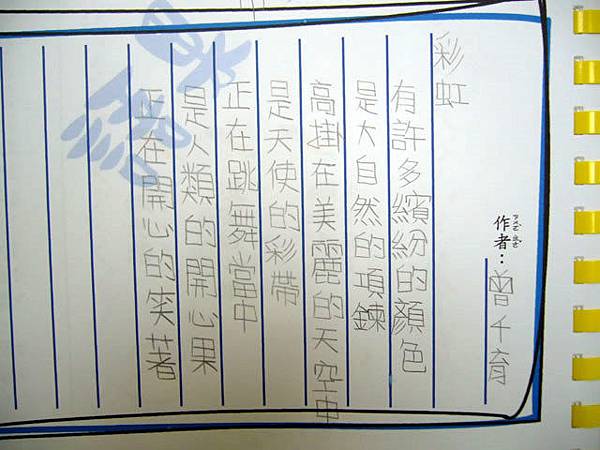 作者：曾千育
彩虹
有許多繽紛的顏色
是大自然的項鍊
高掛在美麗的天空中
是天使的彩帶
正在跳舞當中
是人類的開心果
正在開心的笑著